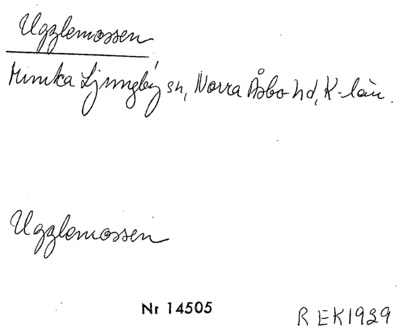 Ugglemossen
Munka Ljungby sn, Norra Åsbo hd, K-län.
Ugglemossen
Nr 14505
R EK 1929